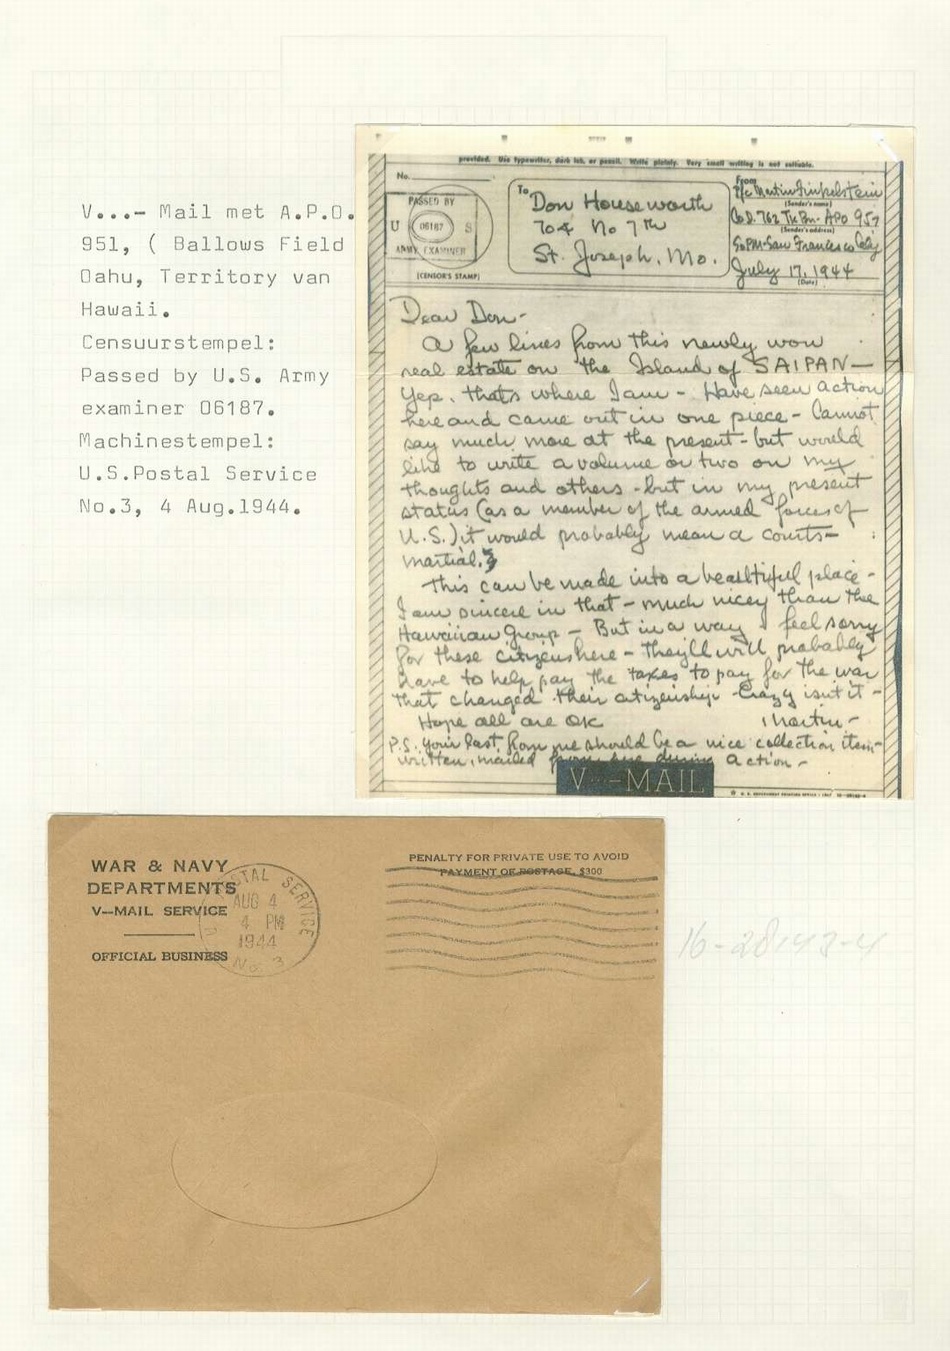 V...- Mail met A.P.O.
951, ( Ballows Field
Oahu, Territory van
Hawaii.
Censuurstempel:
Passed by U.S. Army
examiner 06187.
Machinestempel:
U.S.Postal Service
No.3, 4 Aug.1944.
provided. Use typewriter, dark ink, or pencil. Write plainly. Very small writing is not suitable.
No.
PASSED BY
U 06187 S
ARMY EXAMINER
(CENSOR'S STAMP)
To
Don Houseworth
704 No 7th
St. Joseph, Mo.
From
Pfc Martin Finkelstein
(Sender's name)
Co D. 762 Tk Bn- APO 957
(Sender's address)
San Francisco Calif
July 17, 1944
(Date)
Dear Don-
A few lines from this newly won
real estate on the Island of SAIPAN—
Yep, thats where I am - Have seen action
here and came out in one piece - Cannot
say much more at the present - but would
like to write a volume or two on my
thoughts and others - but in my present
status (as a member of the armed forces of
U.S.) it would probably mean a courts-
martial.
This can be made into a beautiful place -
I am sincere in that - much nicer than the
Hawaiian Group - But in a way I feel sorry
for these citizens here - they'll will probably
have to help pay the taxes to pay for the war
that changed their citizenship - Crazy isnt it -
Hope all are OK
Martin -
P.S. Your last from me should be a nice collection item-
written, mailed from here during action -
V···—MAIL
WAR & NAVY
DEPARTMENTS
V—MAIL SERVICE
OFFICIAL BUSINESS
U.S. POSTAL SERVICE
AUG 4
4 PM
1944
No. 3
PENALTY FOR PRIVATE USE TO AVOID
PAYMENT OF POSTAGE, $300
16-28143-4